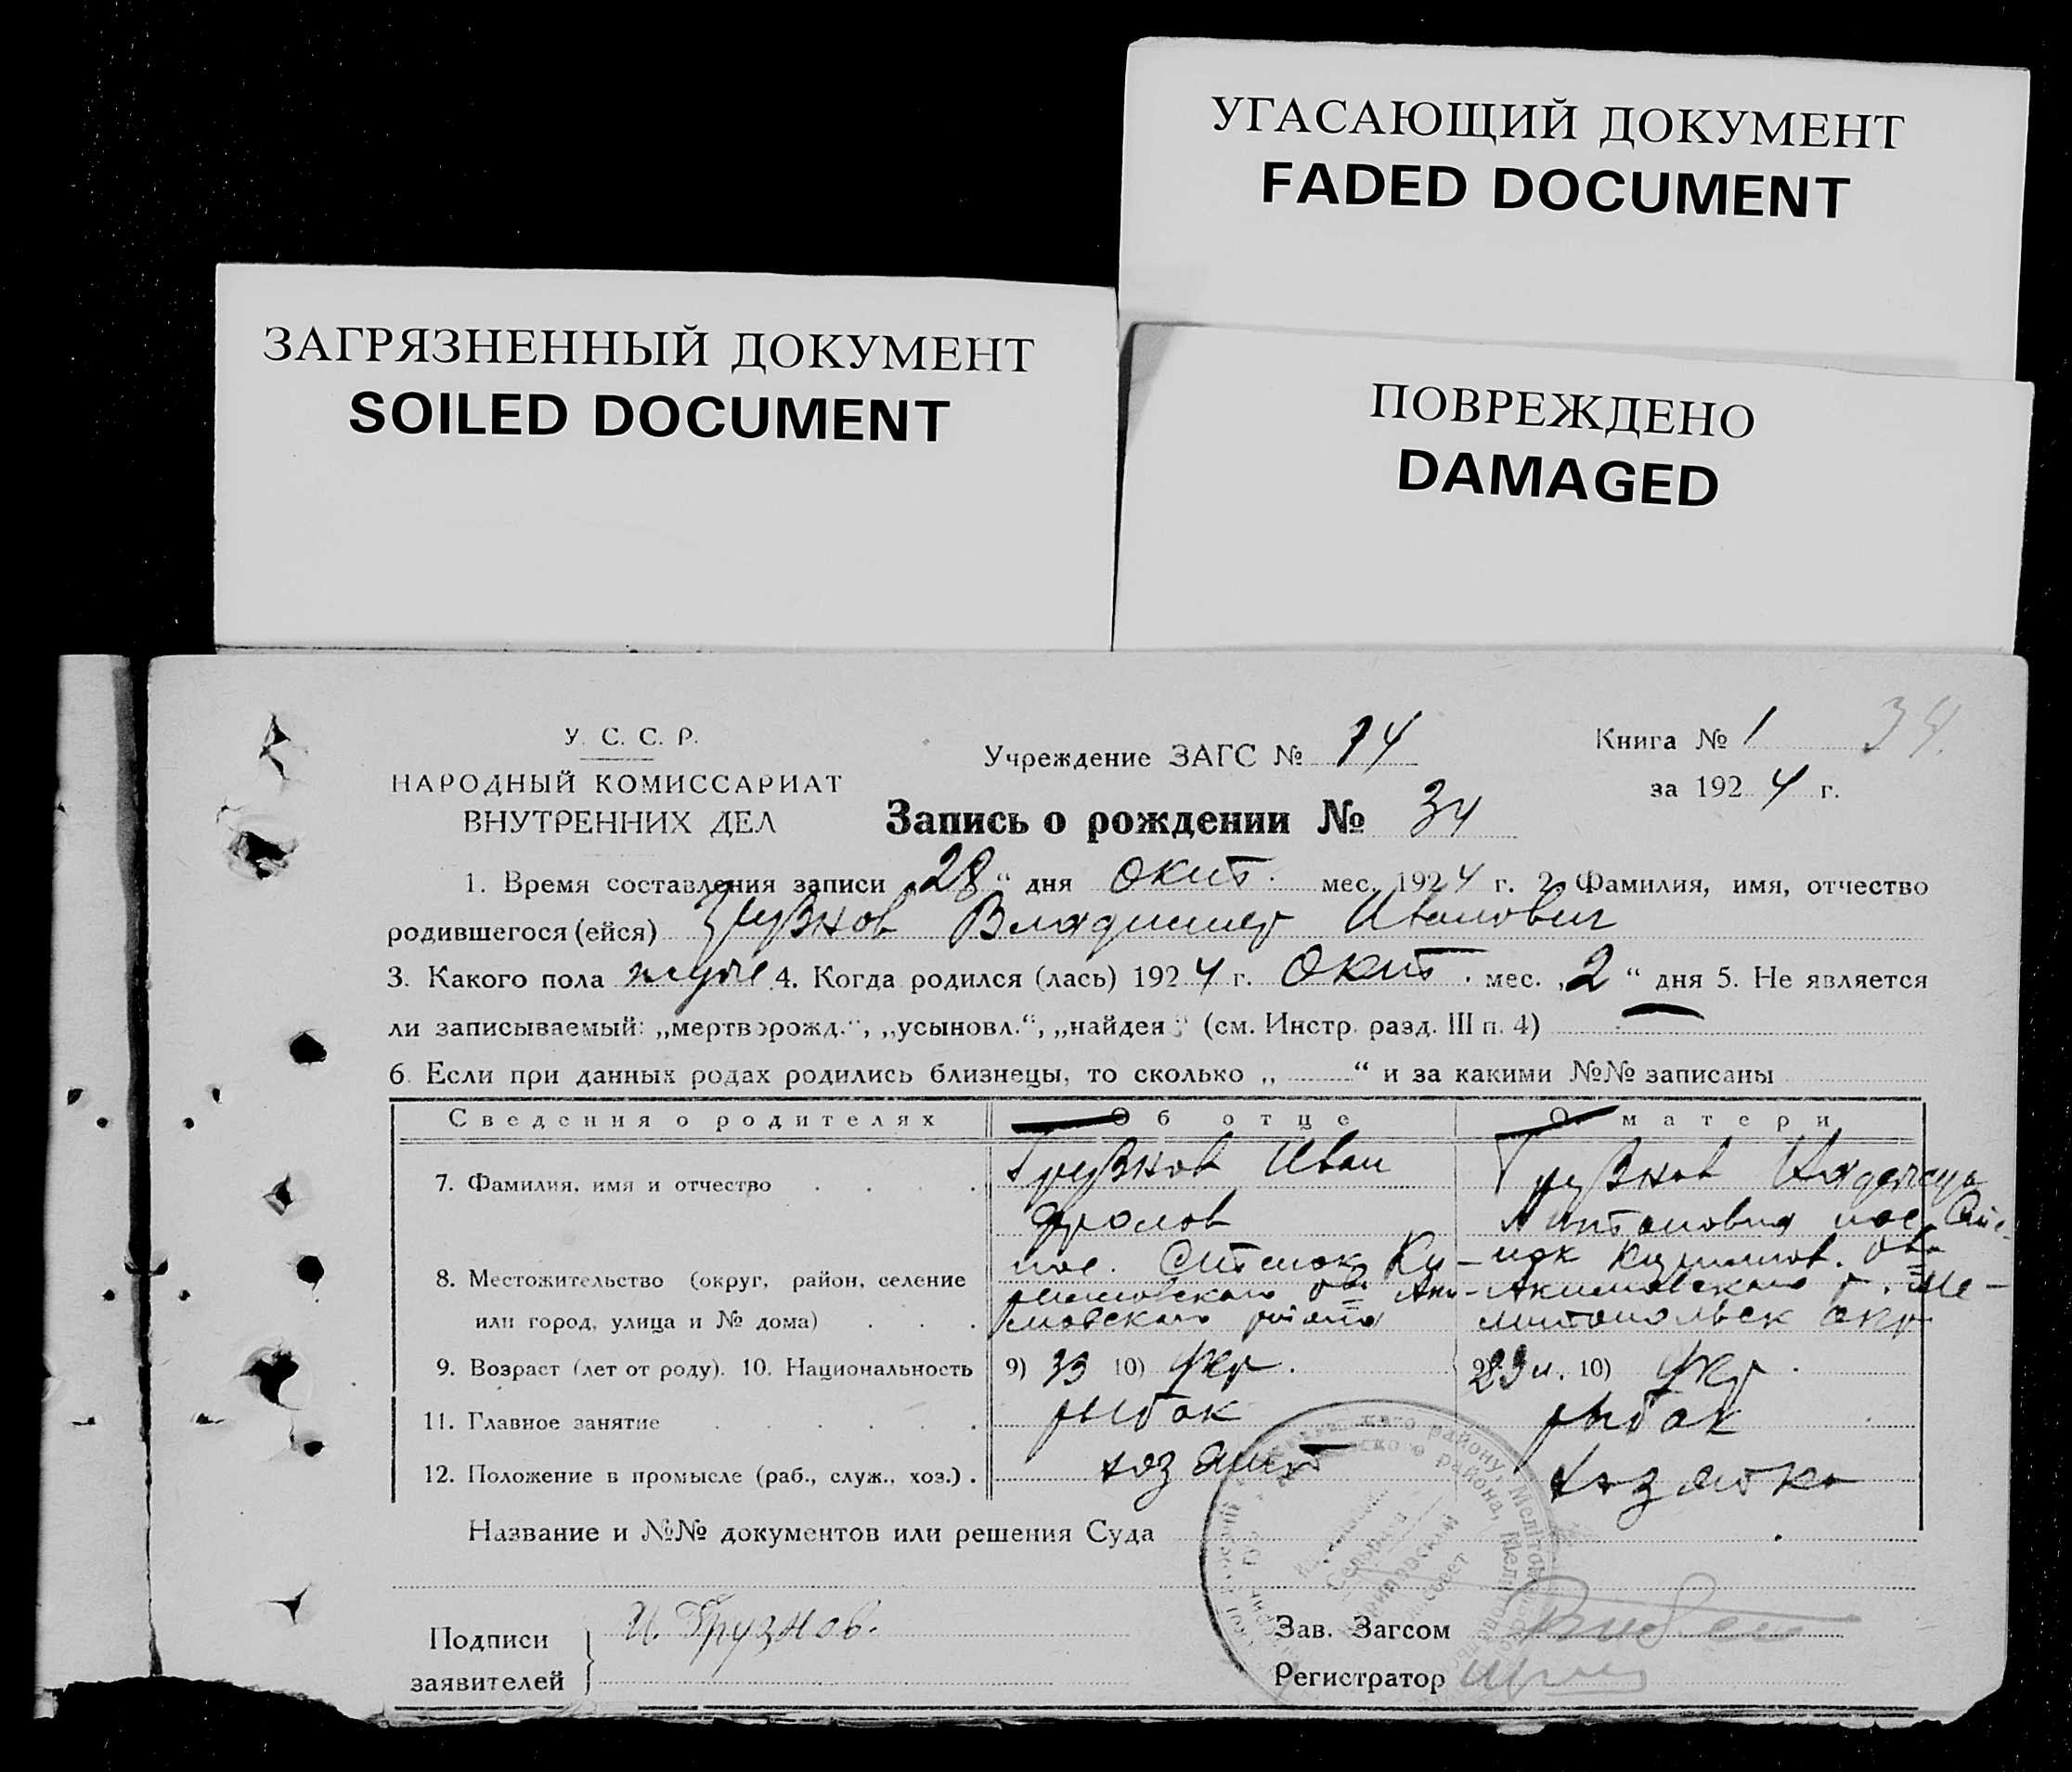 УГАСАЮЩИЙ ДОКУМЕНТ
FADED DOCUMENT
ЗАГРЯЗНЕННЫЙ ДОКУМЕНТ
SOILED DOCUMENT
ПОВРЕЖДЕНО
DAMAGED
У. С. С. Р.
НАРОДНЫЙ КОМИССАРИАТ
ВНУТРЕННИХ ДЕЛ
Учреждение ЗАГС № 14
Книга № 1 34.
за 1924 г.
Запись о рождении № 34
1. Время составления записи „28“ дня окт. мес. 1924 г. 2. Фамилия, имя, отчество
родившегося (ейся) Грузнов Владимир Иванович
3. Какого пола муж 4. Когда родился (лась) 1924 г. Окт. мес. „2“ дня 5. Не является
ли записываемый: „мертворожд.“, „усыновл.“, „найден“ (см. Инстр. разд. III п. 4)
6. Если при данных родах родились близнецы, то сколько „ “ и за какими №№ записаны
Сведения о родителях Об отце О матери
7. Фамилия, имя и отчество Грузнов Иван Грузнов Надежда
Фролов Антоновна пос.
8. Местожительство (округ, район, селение пос.
или город, улица и № дома) района
9. Возраст (лет от роду). 10. Национальность 9) 33 10) Укр. 9) 23 10) Укр.
11. Главное занятие рыбак рыбак
12. Положение в промысле (раб., служ., хоз.) . хозяин хозяйка
Название и №№ документов или решения Суда
Подписи
заявителей
И. Грузнов.
Зав. Загсом
Регистратор